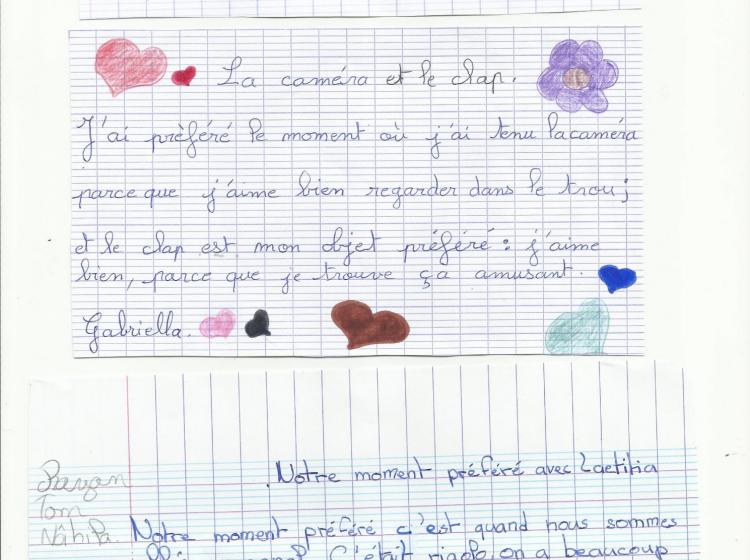 La caméra et le clap.
J'ai préféré le moment où j'ai tenu la caméra
parce que j'aime bien regarder dans le trou ;
et le clap est mon objet préféré : j'aime
bien, parce que je trouve ça amusant.
Gabriella.
Notre moment préféré avec Laetitia
Tom
Notre moment préféré c'est quand nous sommes
C'était rigolo, on a beaucoup